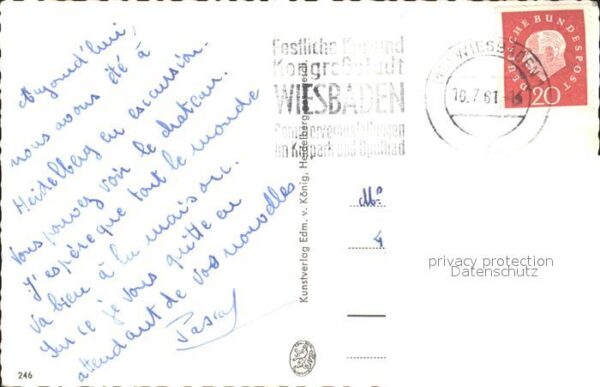 Aujourd'hui,
nous avons été à
Heidelberg en excursion.
Vous pouvez voir le chateau.
J'espère que tout le monde
va bien à la maison.
Sur ce je vous quitte en
attendant de vos nouvelles
Pascal
246
Kunstverlag Edm. v. König, Heidelberg
Festliche Kur und
Kongreßstadt
WIESBADEN
Sommerveranstaltungen
im Kurpark und Opelbad
WIESBADEN
10.7.61
DEUTSCHE BUNDESPOST
20
Mr
4
privacy protection
Datenschutz